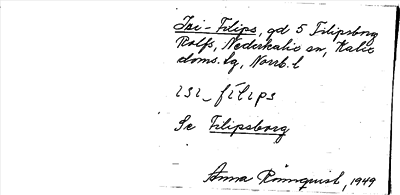 Isi-Filips, gd 5 Filipsborg
Rolfs, Nederkalix sn, Kalix
doms.lg, Norrb.l
isi_ filips
Se Filipsborg
Anna Rönnquist, 1949